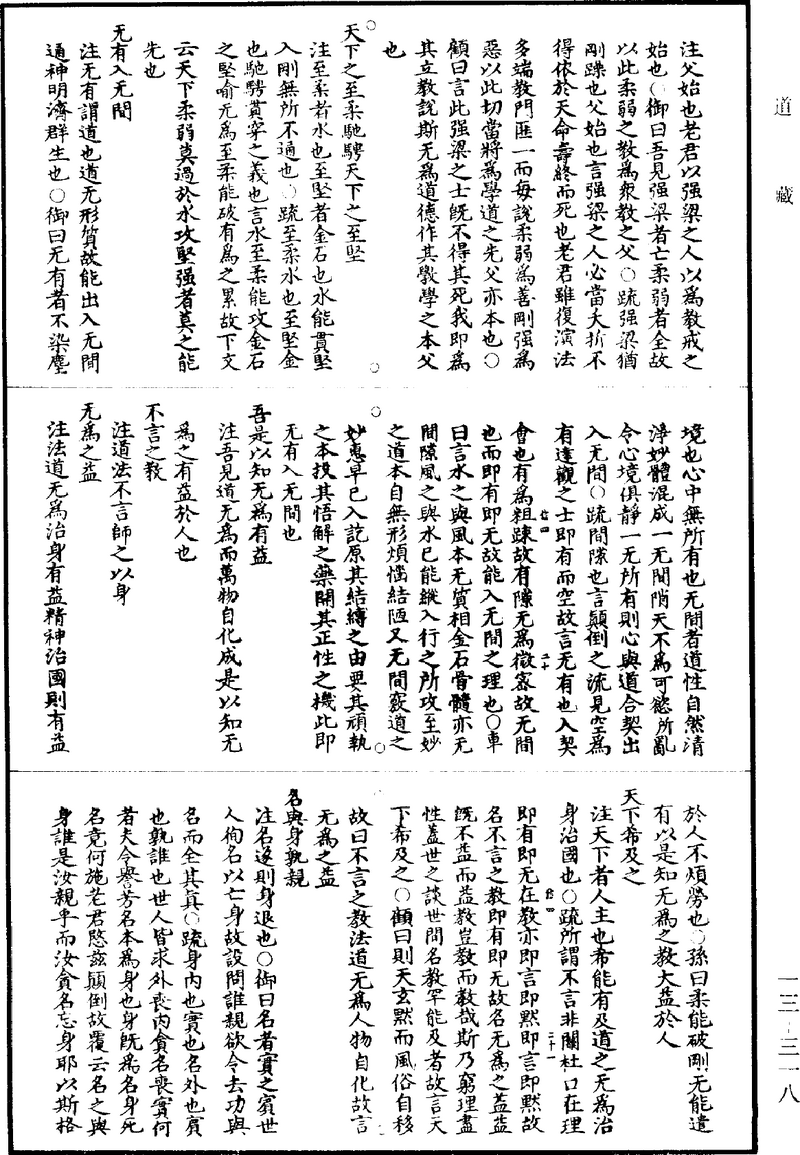 道藏
注父始也老君以强梁之人以爲教戒之
始也○御曰吾見强梁者亡柔弱者全故
以此柔弱之教爲衆教之父○疏强梁猶
剛躁也父始也言强梁之人必當夭折不
得依於天命壽終而死也老君雖復演法
多端教門匪一而每說柔弱爲善剛强爲
惡以此切當將爲學道之先父亦本也○
顧曰言此强梁之士旣不得其死我即爲
其立教說斯无爲道德作其斆學之本父
也
天下之至柔馳騁天下之至堅
注至柔者水也至堅者金石也水能貫堅
入剛無所不通也○疏至柔水也至堅金
也馳騁貫穿之義也言水至柔能攻金石
之堅喻无爲至柔能破有爲之累故下文
云天下柔弱莫過於水攻堅强者莫之能
先也
无有入无間
注无有謂道也道无形質故能出入无間
通神明濟群生也○御曰无有者不染塵
境也心中無所有也无間者道性自然清
淨妙體混成一无間隙天不爲可慾所亂
令心境俱靜一无所有則心與道合契出
入无間○疏間隙也言顛倒之流見空爲
有達觀之士即有而空故言无有也入契
會也有爲粗疎故有隙无爲微宻故无間
也而即有即无故能入无間之理也○車
曰言水之與風本无質相金石骨髓亦无
間隙風之與水已能縱入行之所攻至妙
之道本自無形煩惱結陋又无間竅道之
妙惠早已入訖原其結縛之由要其頑執
之本投其悟解之藥開其正性之機此即
无有入无間也
吾是以知无爲有益
注吾見道无爲而萬物自化成是以知无
爲之有益於人也
不言之教
注道法不言師之以身
无爲之益
注法道无爲治身有益精神治國則有益
於人不煩勞也○孫曰柔能破剛无能遣
有以是知无爲之教大益於人
天下希及之
注天下者人主也希能有及道之无爲治
身治國也○疏所謂不言非關杜口在理
即有即无在教亦即言即默即言即默故
名不言之教即有即无故名无爲之益益
旣不益而益教豈教而教哉斯乃窮理盡
性蓋世之談世間名教罕能及者故言天
下希及之○顧曰則天玄默而風俗自移
故曰不言之教法道无爲人物自化故言
无爲之益
名與身孰親
注名遂則身退也○御曰名者實之賓世
人徇名以亡身故設問誰親欲令去功與
名而全其真○疏身内也實也名外也賓
也孰誰也世人皆求外喪内貪名喪實何
者夫令譽芳名本爲身也身旣爲名身死
名竟何施老君愍兹顛倒故覆云名之與
身誰是汝親乎而汝貪名忘身耶以斯格
一三-三一八